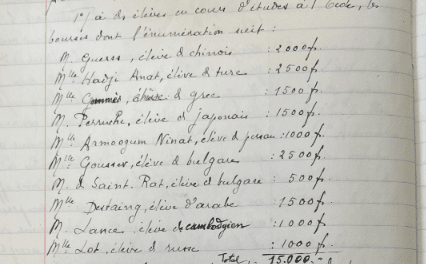 1°) à des élèves en cours d'études à l'École, les
bourses dont l'énumération suit :
M. Guerss, élève de chinois : 2000 f.
Mlle Hadji Anat, élève de turc : 2500 f.
Mlle élève de grec : 1500 f.
M. Perruche, élève de japonais : 1500 f.
Mlle Armoogum Ninat, élève de persan : 1000 f.
Mlle Gousset, élève de bulgare : 2500 f.
M. de Saint-Rat, élève de bulgare : 500 f.
Mlle Destaing, élève d'arabe : 1500 f.
M. Lance, élève de cambodgien : 1000 f.
Mlle Lot, élève de russe : 1000 f.
Total, 15.000.-